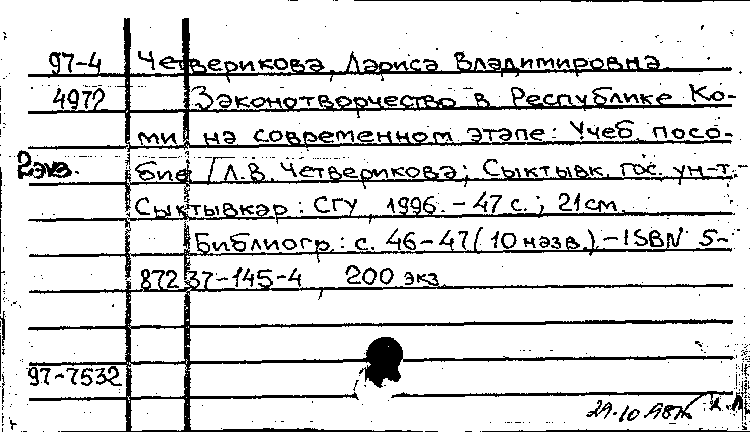 97-4 Четверикова, Лариса Владимировна
4972 Законотворчество в Республике Ко-
ми на современном этапе: Учеб. посо-
2экз. бие / Л.В. Четверикова; Сыктывк. гос. ун-т.-
Сыктывкар: СГУ, 1996. - 47 с.; 21см.
Библиогр.: с. 46-47 (10 назв.) - ISBN 5-
87237-145-4, 200 экз.
97-7532